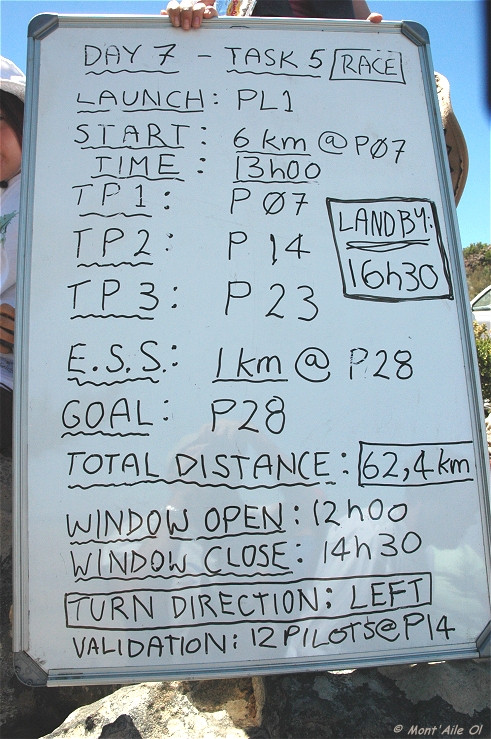 DAY 7 - TASK 5 RACE
LAUNCH: PL1
START: 6 km @ PØ7
TIME: 13h00
TP1: P Ø7
TP2: P 14
TP3: P 23
LAND BY:
16h30
E.S.S.: 1km @ P28
GOAL: P28
TOTAL DISTANCE: 62,4km
WINDOW OPEN: 12h00
WINDOW CLOSE: 14h30
TURN DIRECTION: LEFT
VALIDATION: 12 PILOTS@P14
© Mont'Aile Ol